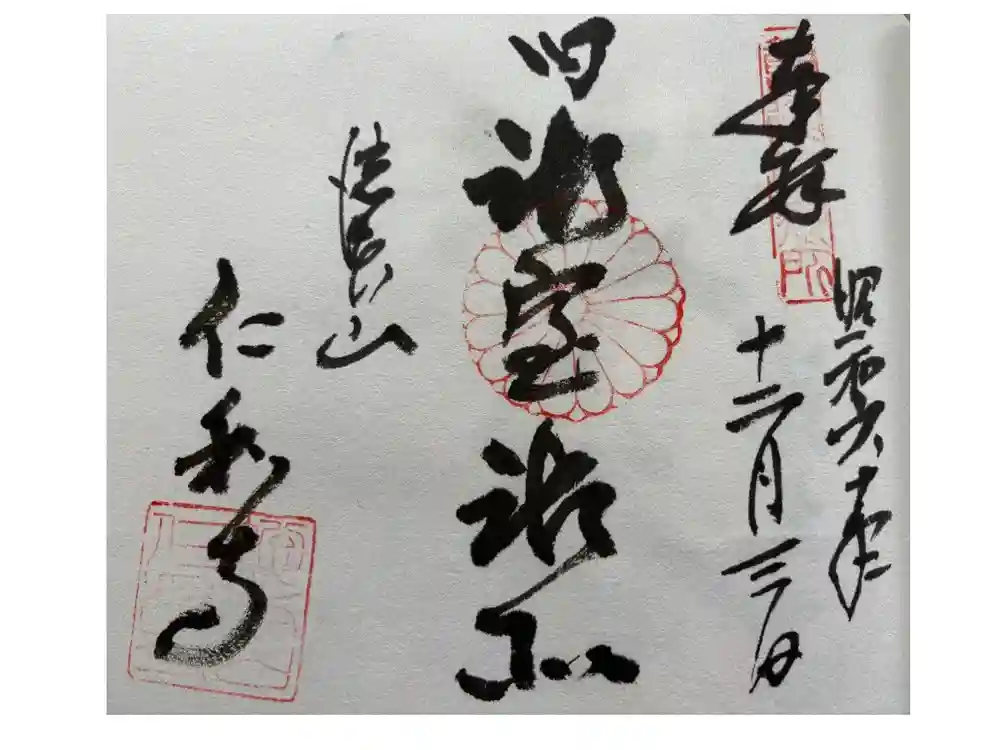 奉拝
昭和六十年
十二月三日
旧御室御所
総本山
仁和寺